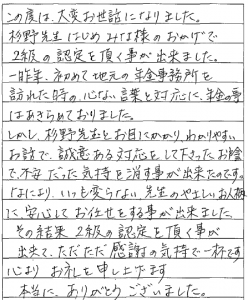 この度は、大変お世話になりました。
杉野先生はじめ みな様のおかげで
2級の認定を頂く事が出来ました。
一昨年、初めて地元の年金事務所を
訪れた時の、心ない言葉と対応に、年金の事
はあきらめておりました。
しかし、杉野先生とお目にかかり、わかりやすい
お話で、誠意ある対応をして下さったお陰
で、不安だった気持を消す事が出来たのです。
なにより、いつも変らない先生のやさしいお人柄
に安心してお任せをする事が出来ました。
その結果 2級の認定を頂く事が
出来て、ただただ感謝の気持で一杯です
心より お礼を申し上げます
本当に、ありがとうございました。